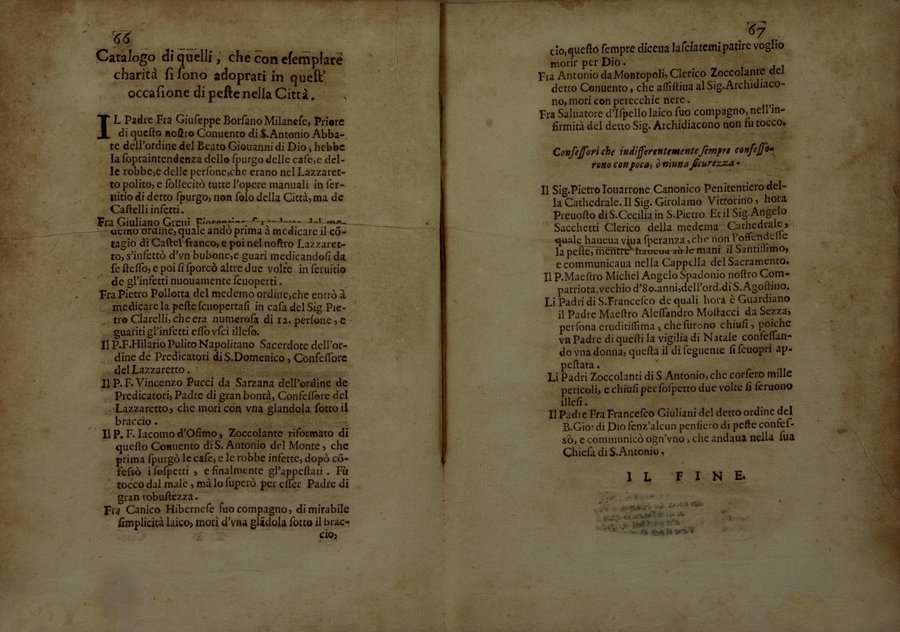 66
Catalogo di quelli, che con eſemplare
charità ſi ſono adoprati in queſt'
occaſione di peſte nella Città.
IL Padre Fra Giuſeppe Borſano Milaneſe, Priore
di queſto noſtro Conuento di S. Antonio Abba-
te dell'ordine del Beato Giouanni di Dio, hebbe
la ſopraintendenza dello ſpurgo delle caſe, e del-
le robbe, e delle perſone, che erano nel Lazzaret-
to polito, e ſollecitò tutte l'opere manuali in ſer-
uitio di detto ſpurgo, non ſolo della Città, ma de
Caſtelli infetti.
Fra Giuliano Greni Fiorentino del me-
demo ordine, quale andò prima à medicare il cõ-
tagio di Caſtel franco, e poi nel noſtro Lazzaret-
to, s'infettò d'vn bubone, e guari medicandoſi da
ſe ſteſſo, e poi ſi ſporcò altre due volte in ſeruitio
de gl'infetti nuouamente ſcuoperti.
Fra Pietro Pollotta del medemo ordine, che entrò à
medicare la peſte ſcuopertaſi in caſa del Sig. Pie-
tro Clarelli, che era numeroſa di 12. perſone, e
guariti gl'infetti eſſo vſcì illeſo.
Il P.F. Hilario Pulito Napolitano Sacerdote dell'or-
dine de Predicatori di S. Domenico, Confeſſore
del Lazzaretto.
Il P.F. Vincenzo Pucci da Sarzana dell'ordine de
Predicatori, Padre di gran bontà, Confeſſore del
Lazzaretto, che morì con vna glandola ſotto il
braccio.
Il P. F. Iacomo d'Oſimo, Zoccolante riformato di
queſto Conuento di S. Antonio del Monte, che
prima ſpurgò le caſe, e le robbe infette, dopò cõ-
feſsò i ſoſpetti, e finalmente gl'appeſtati. Fù
tocco dal male, mà lo ſuperò per eſſer Padre di
gran robuſtezza.
Fra Canico Hiberneſe ſuo compagno, di mirabile
ſimplicità laico, morì d'vna glãdola ſotto il brac-
cio,
67
cio, queſto ſempre diceua laſciatemi patire voglio
morir per Dio.
Fra Antonio da Montopoli, Clerico Zoccolante del
detto Conuento, che aſſiſtiua al Sig. Archidiaco-
no, morì con petecchie nere.
Fra Saluatore d'Iſpello laico ſuo compagno, nell'in-
firmità del detto Sig. Archidiacono non fù tocco.
Confeſſori che indifferentemente ſempre confeſſo-
rono con poca, ò niuna ſicurezza.
Il Sig. Pietro Iouarrone Canonico Penitentiero del-
la Cathedrale. Il Sig. Girolamo Vittorino, hora
Preuoſto di S. Cecilia in S. Pietro. Et il Sig. Angelo
Sacchetti Clerico della medema Cathedrale,
quale haueua viua ſperanza, che non l'offendeſſe
la peſte, mentre haueua sù le mani il Santiſſimo,
e communicaua nella Cappella del Sacramento.
Il P. Maeſtro Michel Angelo Spadonio noſtro Com-
patriota, vecchio d'80. anni, dell'ord. di S. Agoſtino.
Li Padri di S. Franceſco de quali hora è Guardiano
il Padre Maeſtro Aleſſandro Moſtacci da Sezza,
perſona eruditiſſima, che furono chiuſi, poiche
vn Padre di queſti la vigilia di Natale confeſſan-
do vna donna, queſta il dì ſeguente ſi ſcuoprì ap-
peſtata.
Li Padri Zoccolanti di S. Antonio, che corſero mille
pericoli, e chiuſi per ſoſpetto due volte ſi ſeruono
illeſi.
Il Padre Fra Franceſco Giuliani del detto ordine del
B. Gio: di Dio ſenz'alcun penſiero di peſte confeſ-
sò, e communicò ogn'vno, che andaua nella ſua
Chieſa di S. Antonio.
IL FINE.